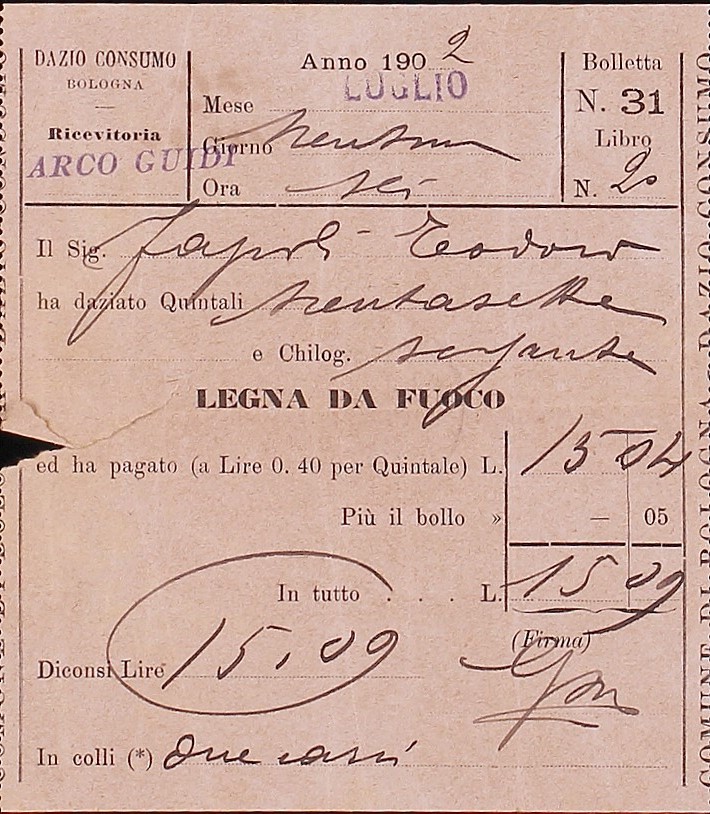 DAZIO CONSUMO
BOLOGNA
Ricevitoria
ARCO GUIDI
Anno 1902
Mese LUGLIO
Giorno trentuno
Ora sei
Bolletta
N. 31
Libro
N. 20
Il Sig. Teodoro
ha daziato Quintali trentasette
e Chilog. sessanta
LEGNA DA FUOCO
ed ha pagato (a Lire 0. 40 per Quintale) L. 15 04
Più il bollo » — 05
In tutto . . . . L. 15 09
(Firma)
Diconsi Lire 15,09
In colli (*) due carri
COMUNE DI BOLOGNA - DAZIO CONSUMO